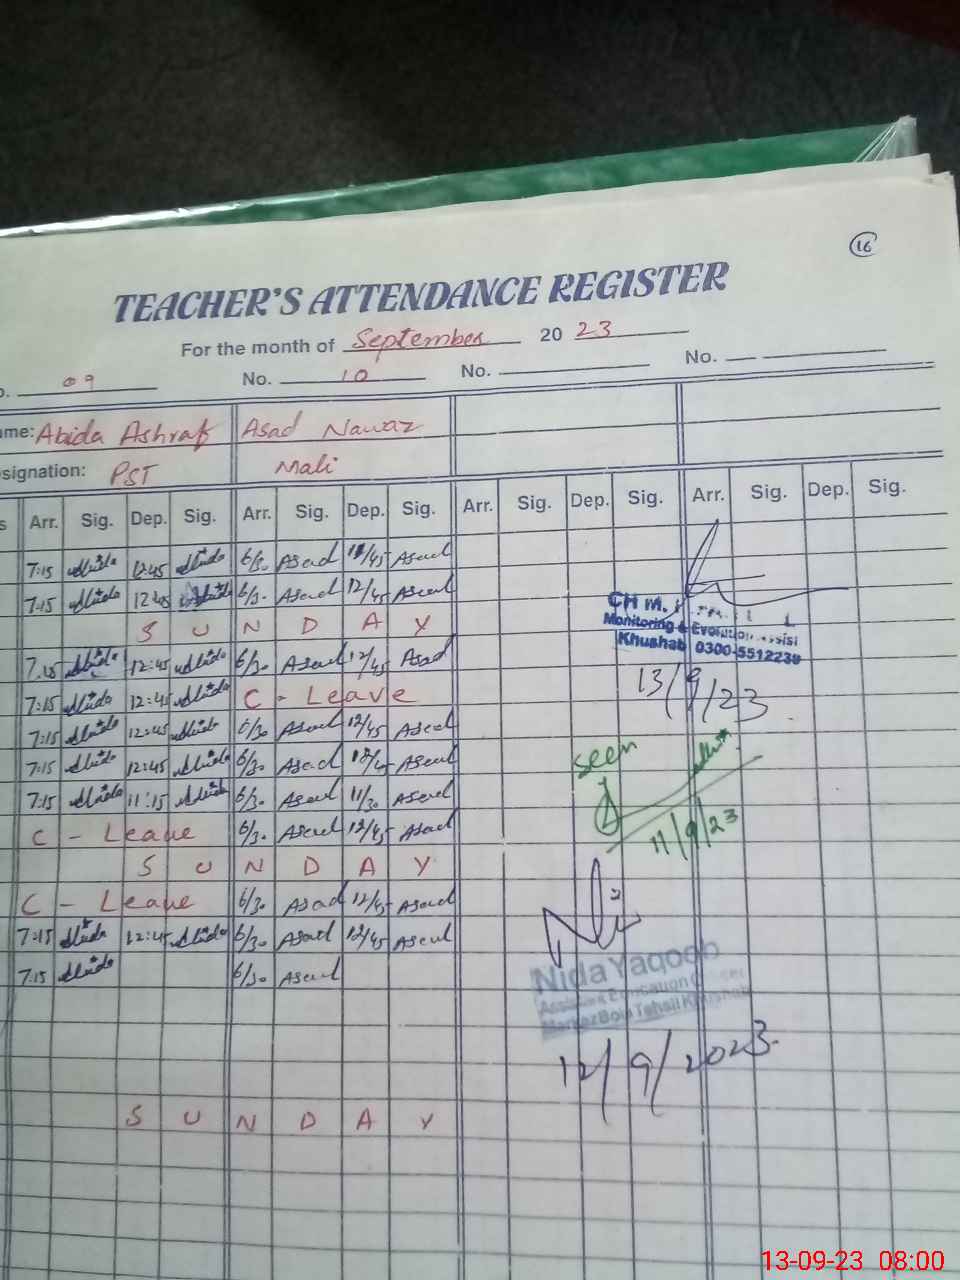 16
TEACHER'S ATTENDANCE REGISTER
For the month of September 2023
o. 09 No. 10 No. No.
ame: Abida Ashraf Asad Nawaz
signation: PST Mali
s Arr. Sig. Dep. Sig. Arr. Sig. Dep. Sig. Arr. Sig. Dep. Sig. Arr. Sig. Dep. Sig.
7:15 Abida 12:45 Abida 6/30 Asad 12/45 Asad
7:15 Abida 12:45 Abida 6/30 Asad 12/45 Asad
S U N D A Y
7:15 Abida 12:45 Abida 6/30 Asad 12/45 Asad
7:15 Abida 12:45 Abida C - Leave
7:15 Abida 12:45 Abida 6/30 Asad 12/45 Asad
7:15 Abida 12:45 Abida 6/30 Asad 12/45 Asad
7:15 Abida 11:15 Abida 6/30 Asad 11/30 Asad
C - Leave 6/30 Asad 12/45 Asad
S U N D A Y
C - Leave 6/30 Asad 12/45 Asad
7:15 Abida 12:45 Abida 6/30 Asad 12/45 Asad
7:15 Abida 6/30 Asad
S U N D A Y
CH M.
Monitoring & Evolution Assist
Khushab 0300-5512239
13/9/23
seen
11/9/23
Nida Yaqoob
Assistant Education Officer
Markaz Bola Tehsil Khushab
12/9/2023
13-09-23 08:00